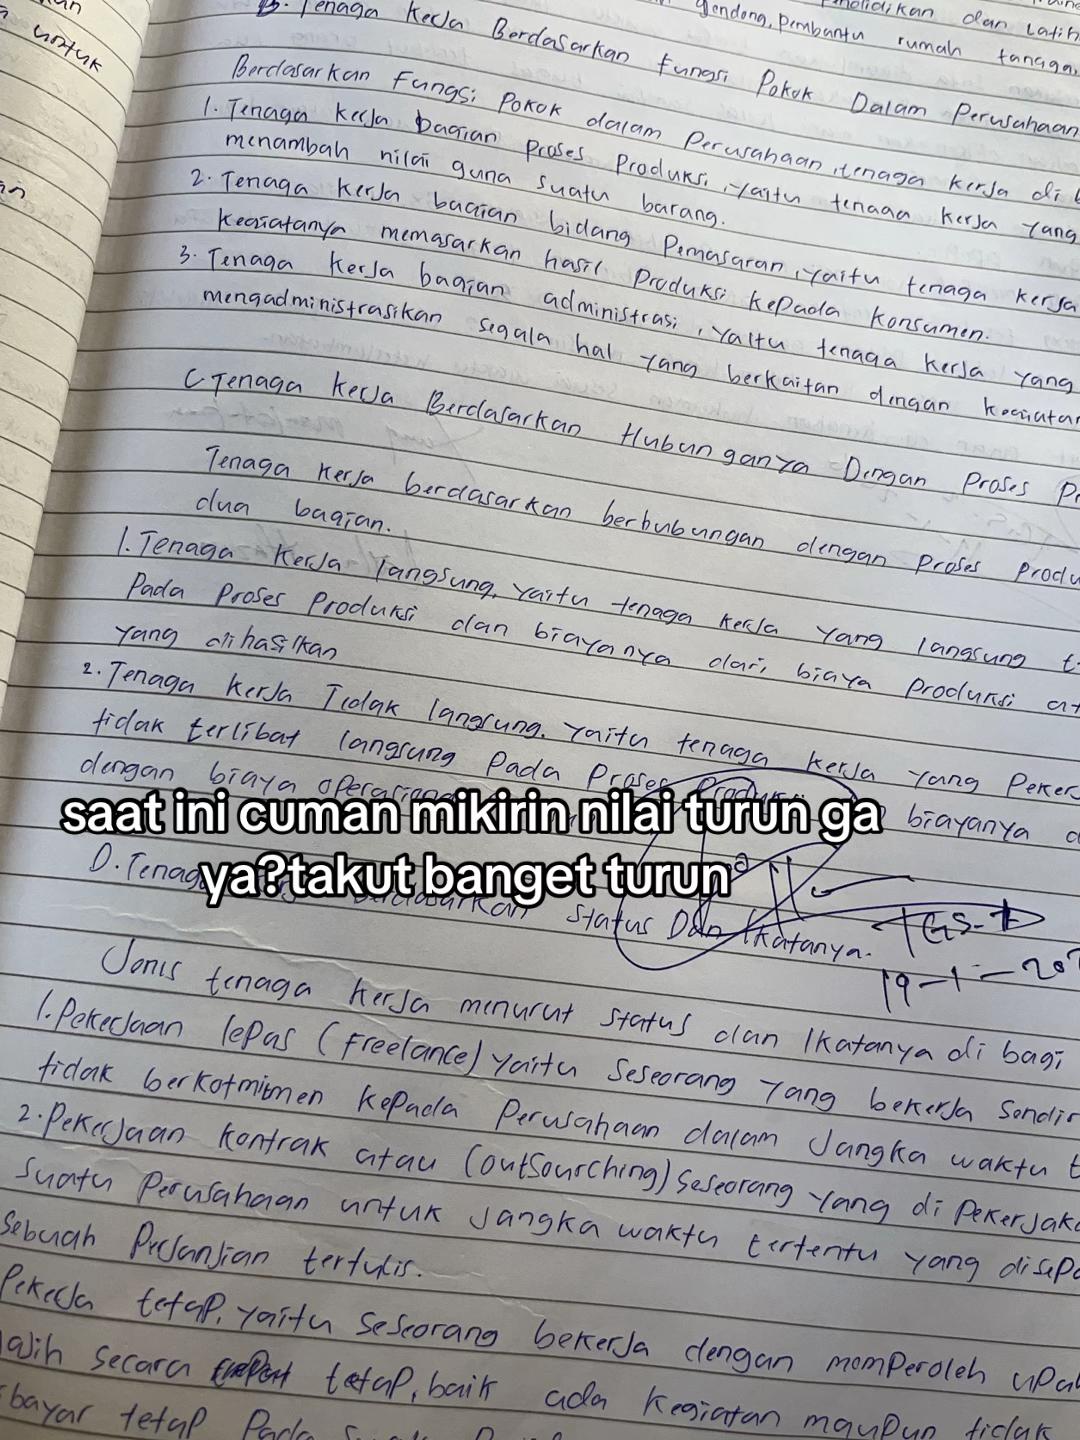 untuk
gendong, pembantu rumah tangga,
B. Tenaga Kerja Berdasarkan Fungsi Pokok Dalam Perusahaan
Berdasarkan Fungsi Pokok dalam Perusahaan, tenaga kerja di b
1. Tenaga kerja bagian Proses Produksi, yaitu tenaga kerja yang
menambah nilai guna suatu barang.
2. Tenaga kerja bagian bidang Pemasaran, yaitu tenaga kerja
kegiatanya memasarkan hasil Produksi kepada konsumen.
3. Tenaga kerja bagian administrasi, yaitu tenaga kerja yang
mengadministrasikan segala hal yang berkaitan dengan kegiatan
C. Tenaga Kerja Berdasarkan Hubunganya Dengan Proses Pr
Tenaga kerja berdasarkan berhubungan dengan Proses Produ
dua bagian.
1. Tenaga kerja langsung, yaitu tenaga kerja yang langsung t
Pada Proses Produksi dan biayanya dari, biaya Produksi at
yang dihasilkan
2. Tenaga kerja Tidak langsung, yaitu tenaga kerja yang Peker
tidak terlibat langsung Pada Proses Produksi biayanya d
dengan biaya
saat ini cuman mikirin nilai turun ga
ya?takut banget turun
D. Tenaga Berdasarkan Status Dan Ikatanya.
TGS-1
19-1-20
Jenis tenaga kerja menurut status dan Ikatanya di bagi
1. Pekerjaan lepas (Freelance) yaitu Seseorang yang bekerja Sendir
tidak berkotmitmen kepada Perusahaan dalam Jangka waktu t
2. Pekerjaan kontrak atau (outsourching) Seseorang yang di Pekerjaka
Suatu Perusahaan untuk Jangka waktu tertentu yang disepa
Sebuah Perjanjian tertulis.
Pekerja tetap, yaitu Seseorang bekerja dengan memperoleh upa
secara tetap, baik ada kegiatan maupun tidak
bayar tetap Pada